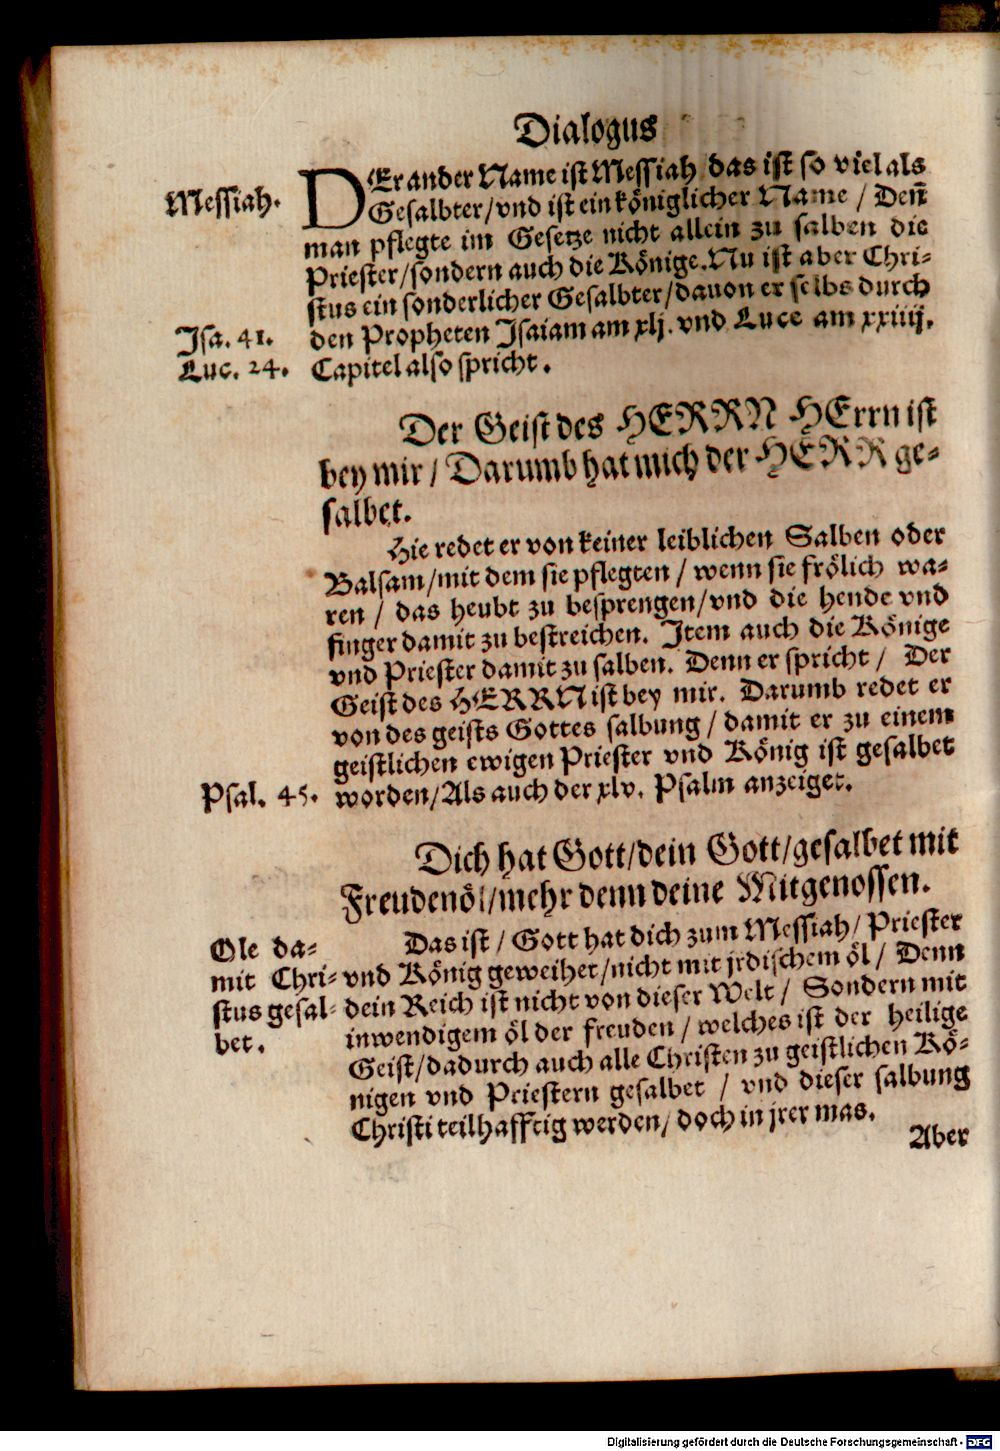 Dialogus
Messiah.
DEr ander Name ist Messiah das ist so viel als
Gesalbter/vnd ist ein königlicher Name / Deñ
man pflegte im Gesetze nicht allein zu salben die
Priester/sondern auch die Könige. Nu ist aber Chri-
stus ein sonderlicher Gesalbter/dauon er selbs durch
Isa. 41.
den Propheten Isaiam am xlj. vnd Luce am xxiiij.
Luc. 24.
Capitel also spricht.
Der Geist des HERRN HErrn ist
bey mir / Darumb hat mich der HERR ge-
salbet.
Hie redet er von keiner leiblichen Salben oder
Balsam/mit dem sie pflegten / wenn sie frölich wa-
ren / das heubt zu besprengen/vnd die hende vnd
finger damit zu bestreichen. Item auch die Könige
vnd Priester damit zu salben. Denn er spricht / Der
Geist des HERRN ist bey mir. Darumb redet er
von des geists Gottes salbung / damit er zu einem
geistlichen ewigen Priester vnd König ist gesalbet
Psal. 45.
worden/Als auch der xlv. Psalm anzeiget.
Dich hat Gott/dein Gott/gesalbet mit
Freudenöl/mehr denn deine Mitgenossen.
Ole da-
mit Chri-
stus gesal-
bet.
Das ist / Gott hat dich zum Messiah/ Priester
vnd König geweihet/nicht mit jrdischem öl / Denn
dein Reich ist nicht von dieser Welt / Sondern mit
inwendigem öl der freuden / welches ist der heilige
Geist/dadurch auch alle Christen zu geistlichen Kö-
nigen vnd Priestern gesalbet / vnd dieser salbung
Christi teilhafftig werden/ doch in jrer mas.
Aber
Digitalisierung gefördert durch die Deutsche Forschungsgemeinschaft - DFG